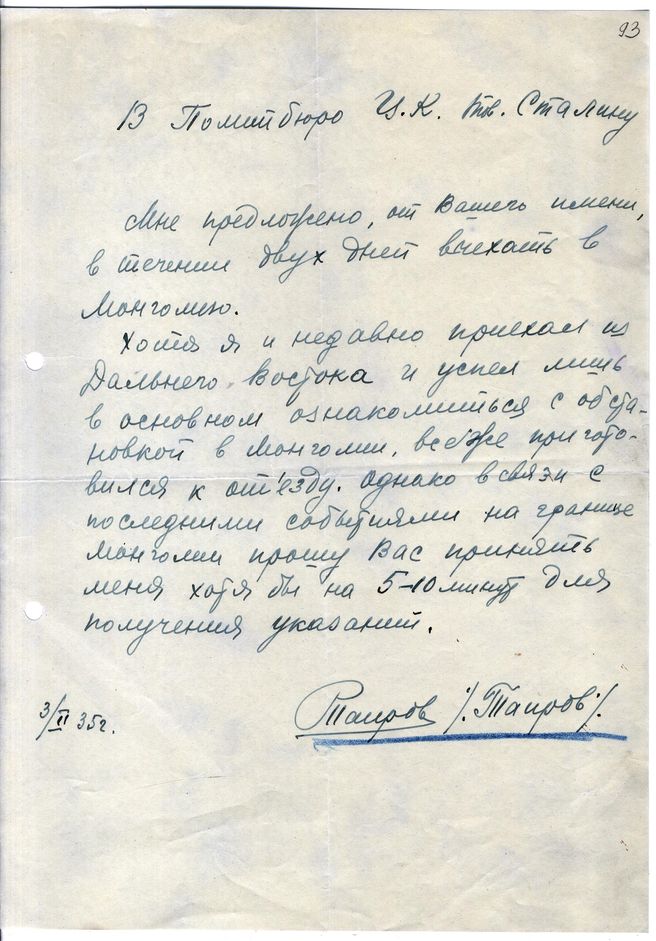 93
В Политбюро Ц.К. тов. Сталину
Мне предложено, от Вашего имени,
в течении двух дней выехать в
Монголию.
Хотя я и недавно приехал из
Дальнего Востока и успел лишь
в основном ознакомиться с обста-
новкой в Монголии, все же пригото-
вился к от'езду. Однако в связи с
последними событиями на границе
Монголии прошу Вас принять
меня хотя бы на 5-10 минут для
получения указаний.
3/II 35г.
Таиров /.Таиров/.